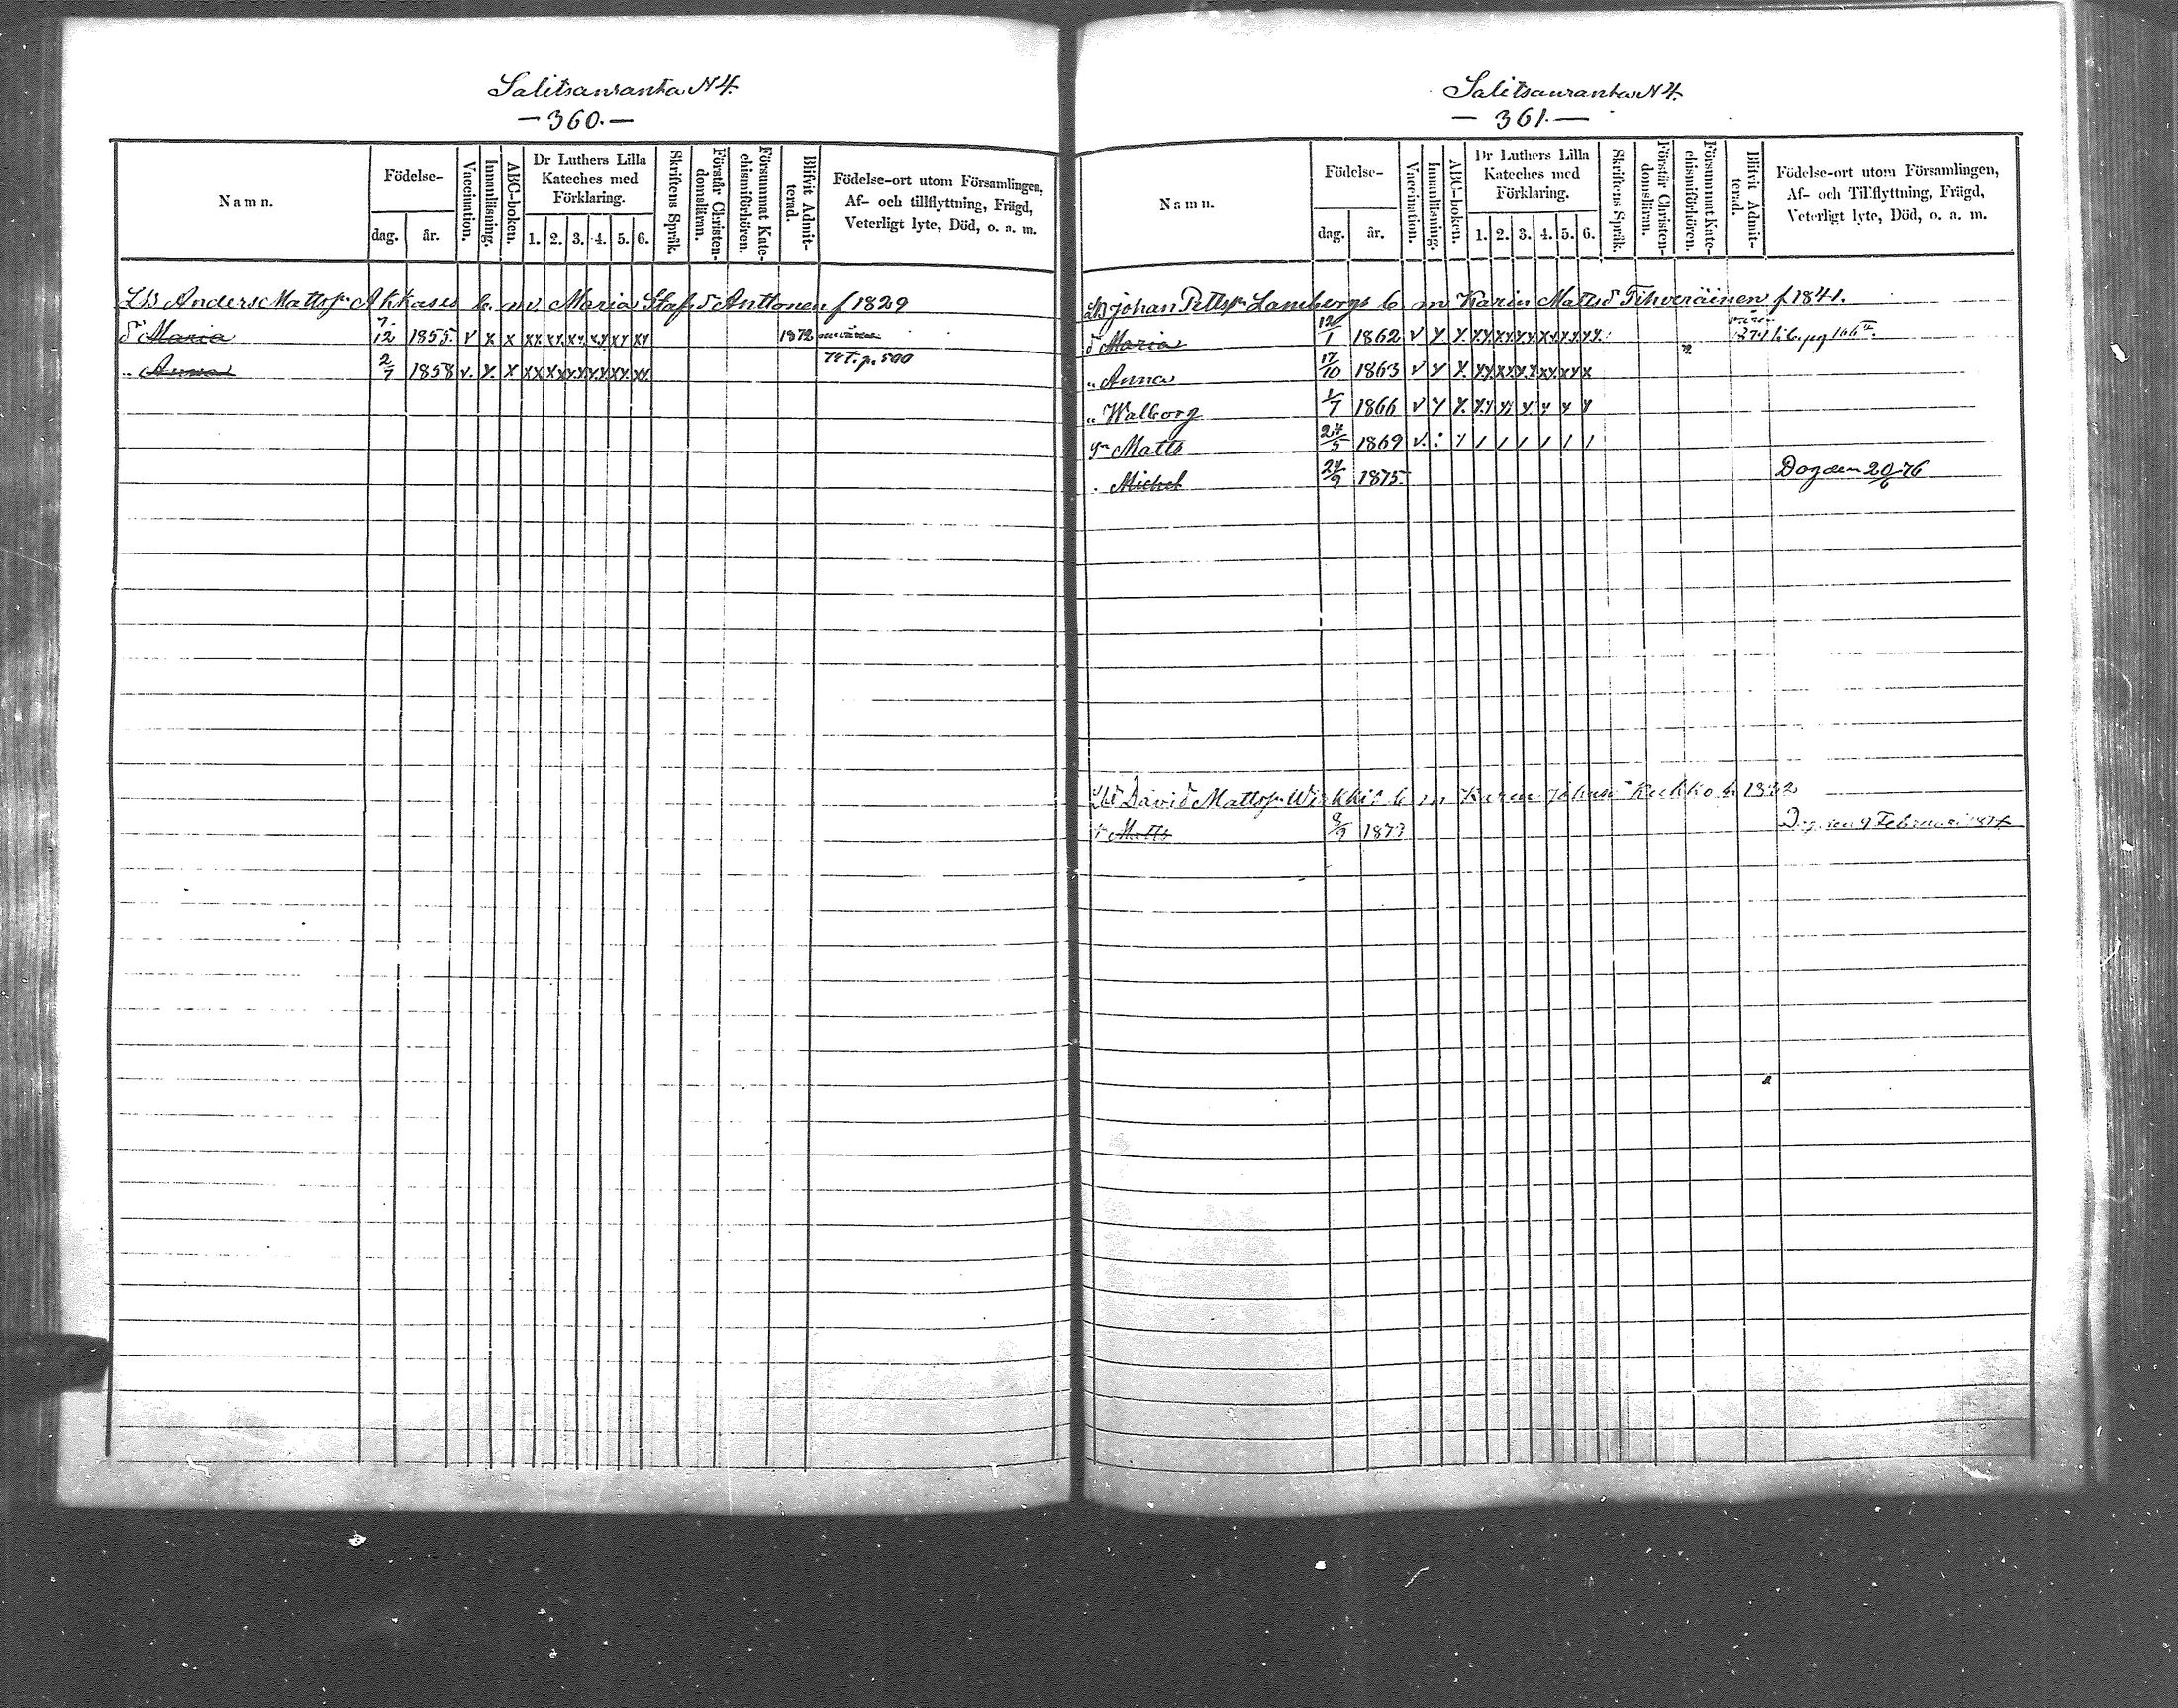 Salitsanranta N 4.
— 360. —
Namn.
Födelse-
dag.
år.
Vaccination.
Innanläsning.
ABC-boken.
Dr Luthers Lilla Kateches med Förklaring.
1. 2. 3. 4. 5. 6.
Skriftens Språk.
Förstår Christendomsläran.
Försummat Katechismiförhören.
Blifvit Admitterad.
Födelse-ort utom Församlingen,
Af- och tillflyttning, Frägd,
Veterligt lyte, Död, o. a. m.
Anders Matts Akkases b. m. Maria Staf.d Anttonen f 1829
d Maria 7/12 1855. v x x xx xx xx xx xx xx 1872
" Anna 2/7 1858 v. x x xx xx xx xx xx xx p. 500
Salitsanranta N 4.
— 361. —
Namn.
Födelse-
dag.
år.
Vaccination.
Innanläsning.
ABC-boken.
Dr Luthers Lilla Kateches med Förklaring.
1. 2. 3. 4. 5. 6.
Skriftens Språk.
Förstår Christendomsläran.
Försummat Katechismiförhören.
Blifvit Admitterad.
Födelse-ort utom Församlingen,
Af- och Tillflyttning, Frägd,
Veterligt lyte, Död, o. a. m.
Johan Petts Lambergs b m Karin Matts d Tihveräinen f 1841.
d Maria 12/1 1862 v x x xx xx xx xx xx xx
" Anna 17/10 1863 v x x xx xx xx xx xx x
" Walborg 1/7 1866 v x x xx x x x x x
Matts 24/5 1869 v. : / / / / / / /
Michel 24/9 1875. Dog den 20/6 76
David Matts b m Karin
Matts 8/9 1873 Februari